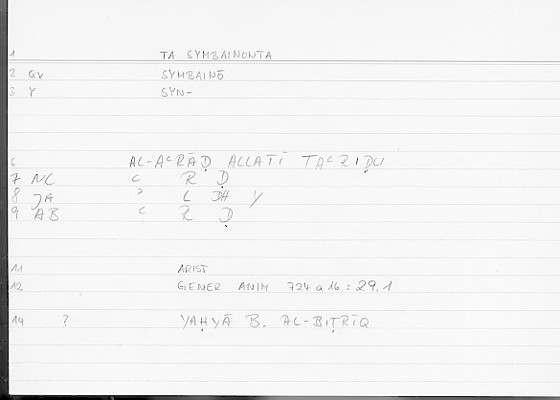 1 TA SYMBAINONTA
2 QV SYMBAINŌ
3 Y SYN-
6 AL-AʿRĀḌ ALLATĪ TAʿRIḌU
7 NC ʿ R Ḍ
8 JA ʾ L DH Y
9 AB ʿ R Ḍ
11 ARIST
12 GENER ANIM 724 a 16 : 29,1
14 ? YAḤYĀ B. AL-BIṬRĪQ